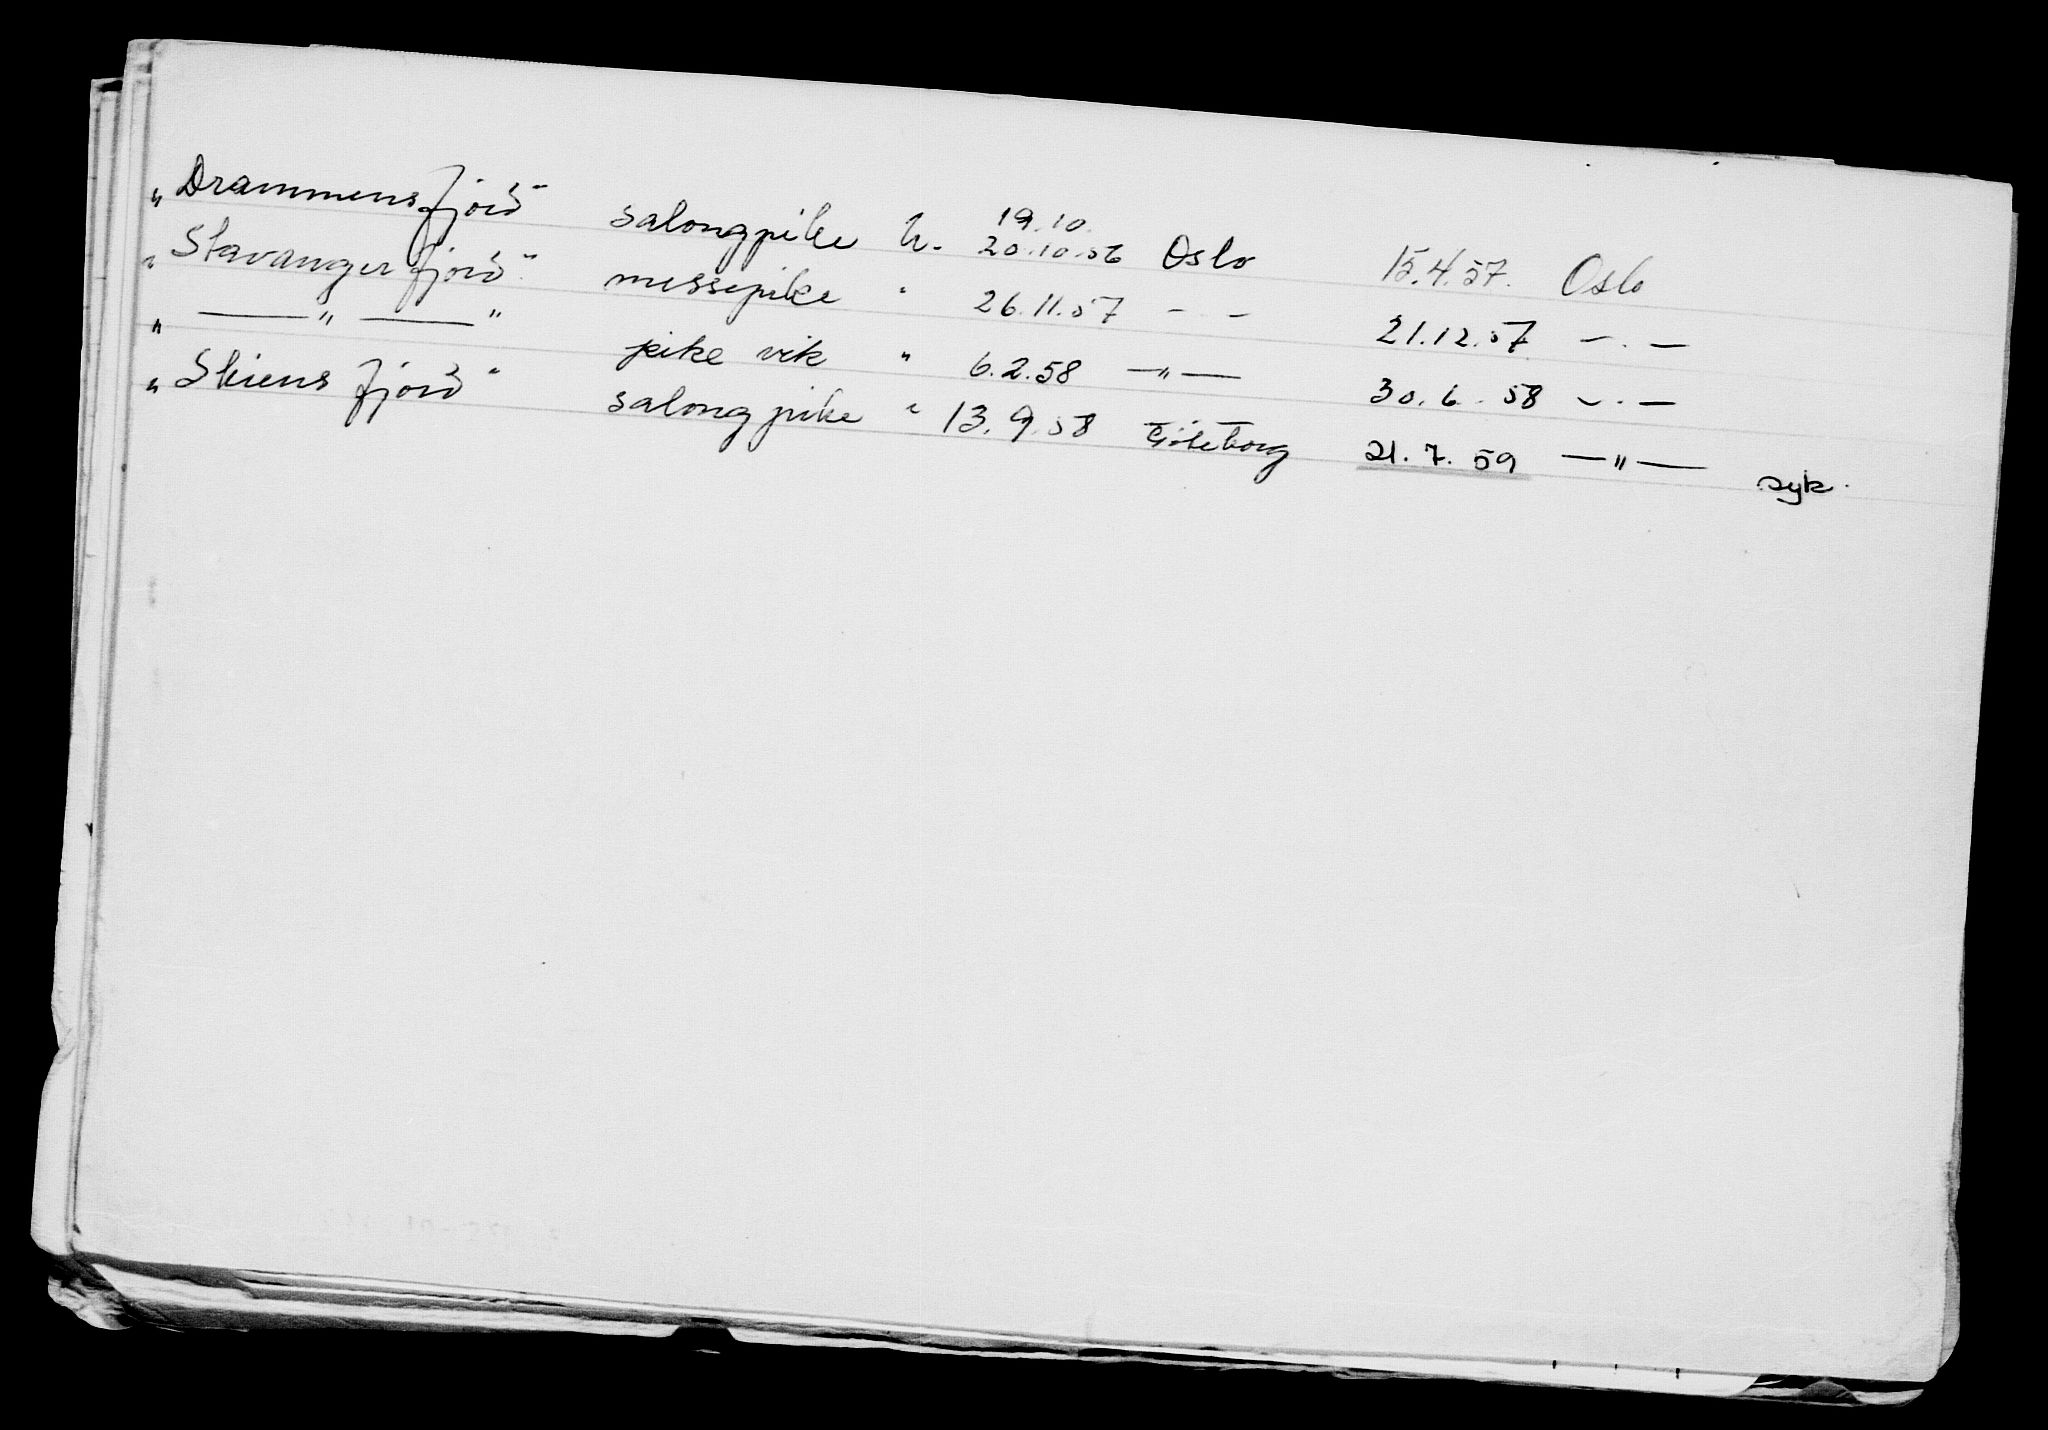 19.10.
„Drammensfjord" salongpike h. 20.10.56 Oslo 15.4.57. Oslo
„Stavangerfjord" messepike " 26.11.57 — " — 21.12.57 — " —
„ — " — " pike vik " 6.2.58 — " — 30.6.58 — " —
„Skiensfjord" salongpike " 13.9.58 Göteborg 21.7.59 — " — syk.